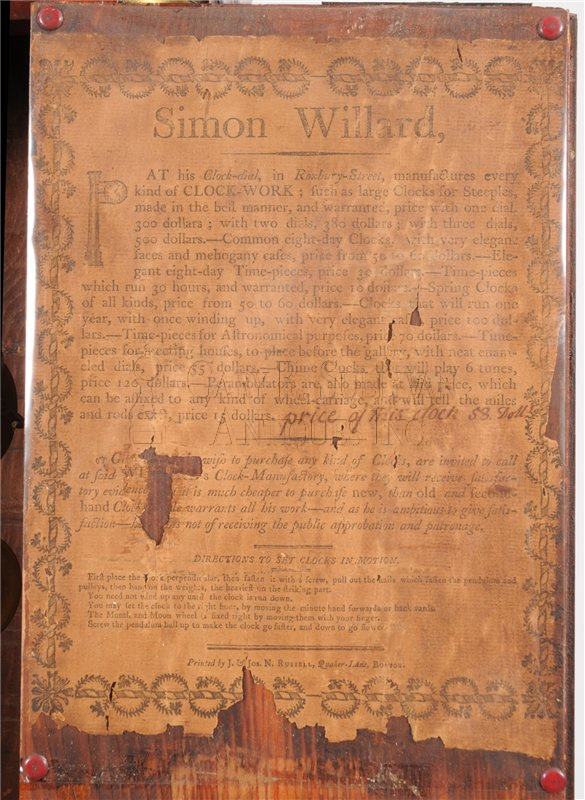 Simon Willard,
AT his Clock-dial, in Roxbury-Street, manufactures every
kind of CLOCK-WORK; such as large Clocks for Steeples,
made in the best manner, and warranted, price with one dial,
500 dollars; with two dials, 380 dollars; with three dials,
500 dollars.—Common eight-day Clocks, with very elegant
faces and mohogany cases, price from 50 to 60 dollars.—Ele-
gant eight-day Time-pieces, price 30 dollars.—Time-pieces
which run 30 hours, and warranted, price 10 dollars.—Spring Clocks
of all kinds, price from 50 to 60 dollars.—Clocks that will run one
year, with once winding up, with very elegant cases, price 100 dol-
lars.—Time-pieces for Astronomical purposes, price 70 dollars.—Time-
pieces for meeting houses, to place before the gallery, with neat enam-
eled dials, price 55 dollars.—Chime Clocks, that will play 6 tunes,
price 120 dollars.—Perambulators are also made at this place, which
can be affixed to any kind of wheel-carriage, and will tell the miles
and rods exact, price 15 dollars. price of this clock 58 Doll
ANTIQUES INC
wish to purchase any kind of Clocks, are invited to call
at said Clock-Manufactory, where they will receive satisfac-
tory evidence it is much cheaper to purchase new, than old and second
hand warrants all his work—and as he is ambitious to give satis-
faction— not of receiving the public approbation and patronage.
DIRECTIONS TO SET CLOCKS IN MOTION.
First place the perpendicular, then fasten it with a screw, pull out the nails which fasten the pendulum and
pulleys, then hang on the weights, the heaviest on the striking part.
You need not wind up any until the clock is run down.
You may set the clock to the right hour, by moving the minute hand forwards or backwards.
The Month and Moon wheel is fixed right by moving them with your finger.
Screw the pendulum ball up to make the clock go faster, and down to go slower.
Printed by J. & Jos. N. Russell, Quaker-Lane, Boston.